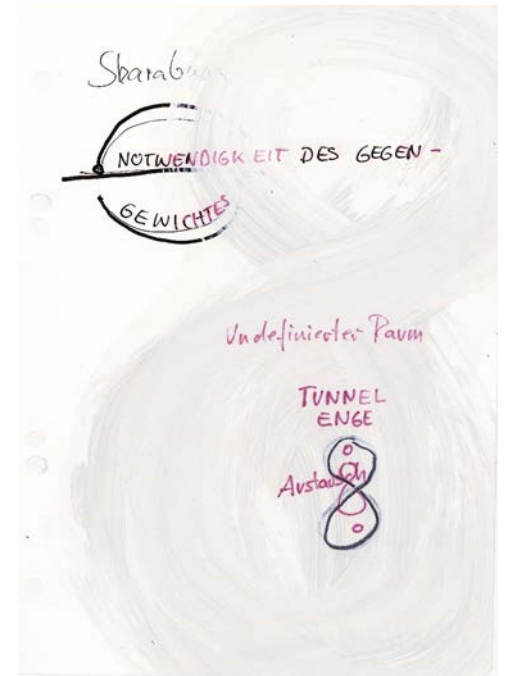 NOTWENDIGKEIT DES GEGEN-
GEWICHTES
Undefinierter Raum
TUNNEL
ENGE
Austausch